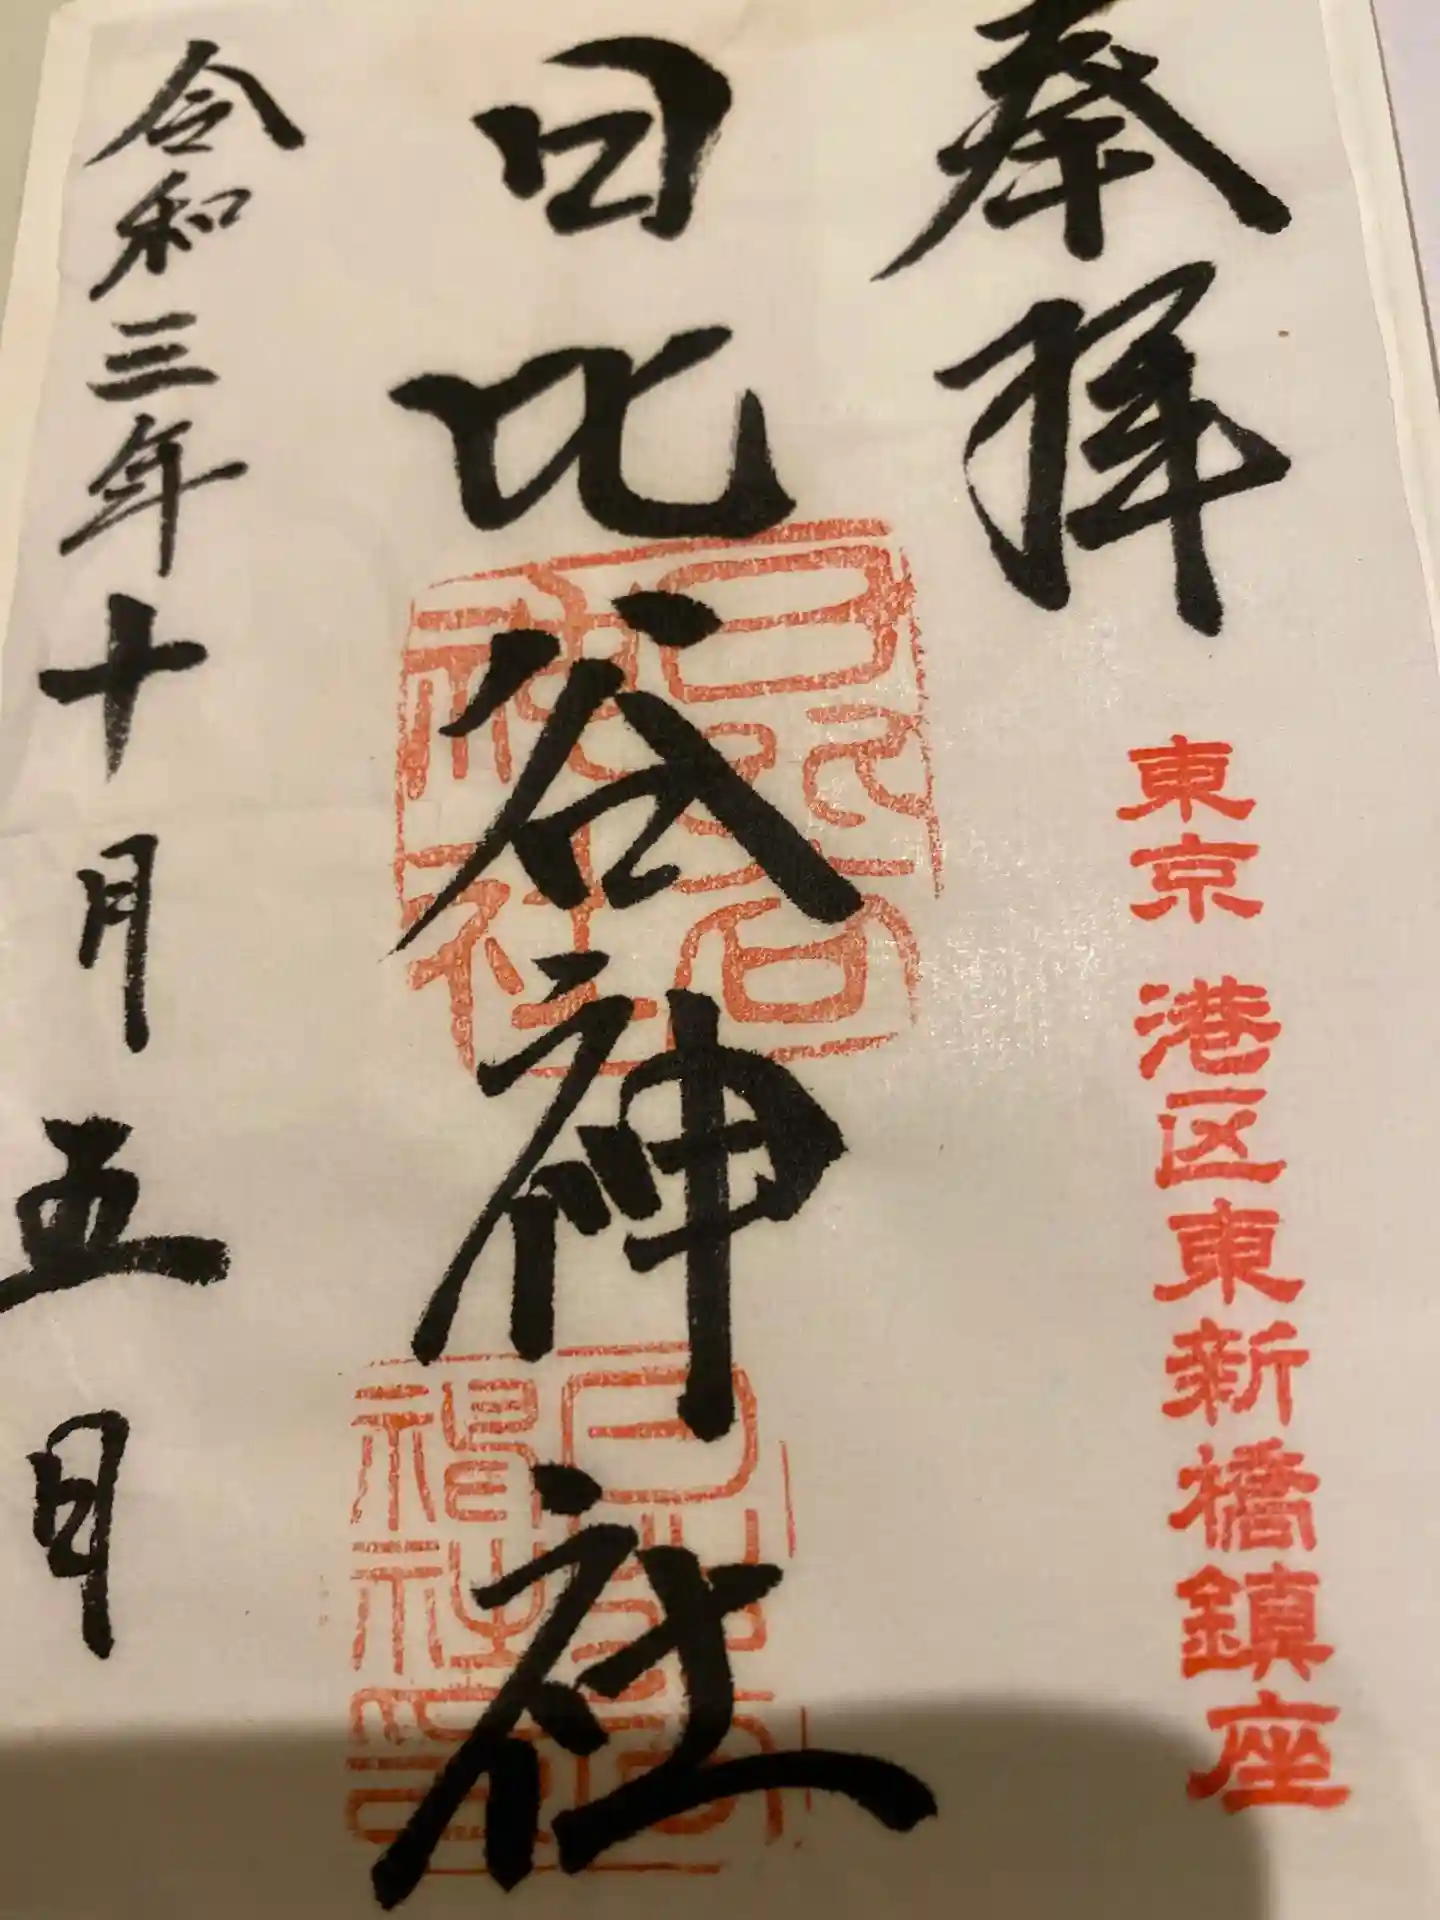 奉拝
東京 港区東新橋鎮座
日比谷神社
日比谷神社
令和三年十月五日